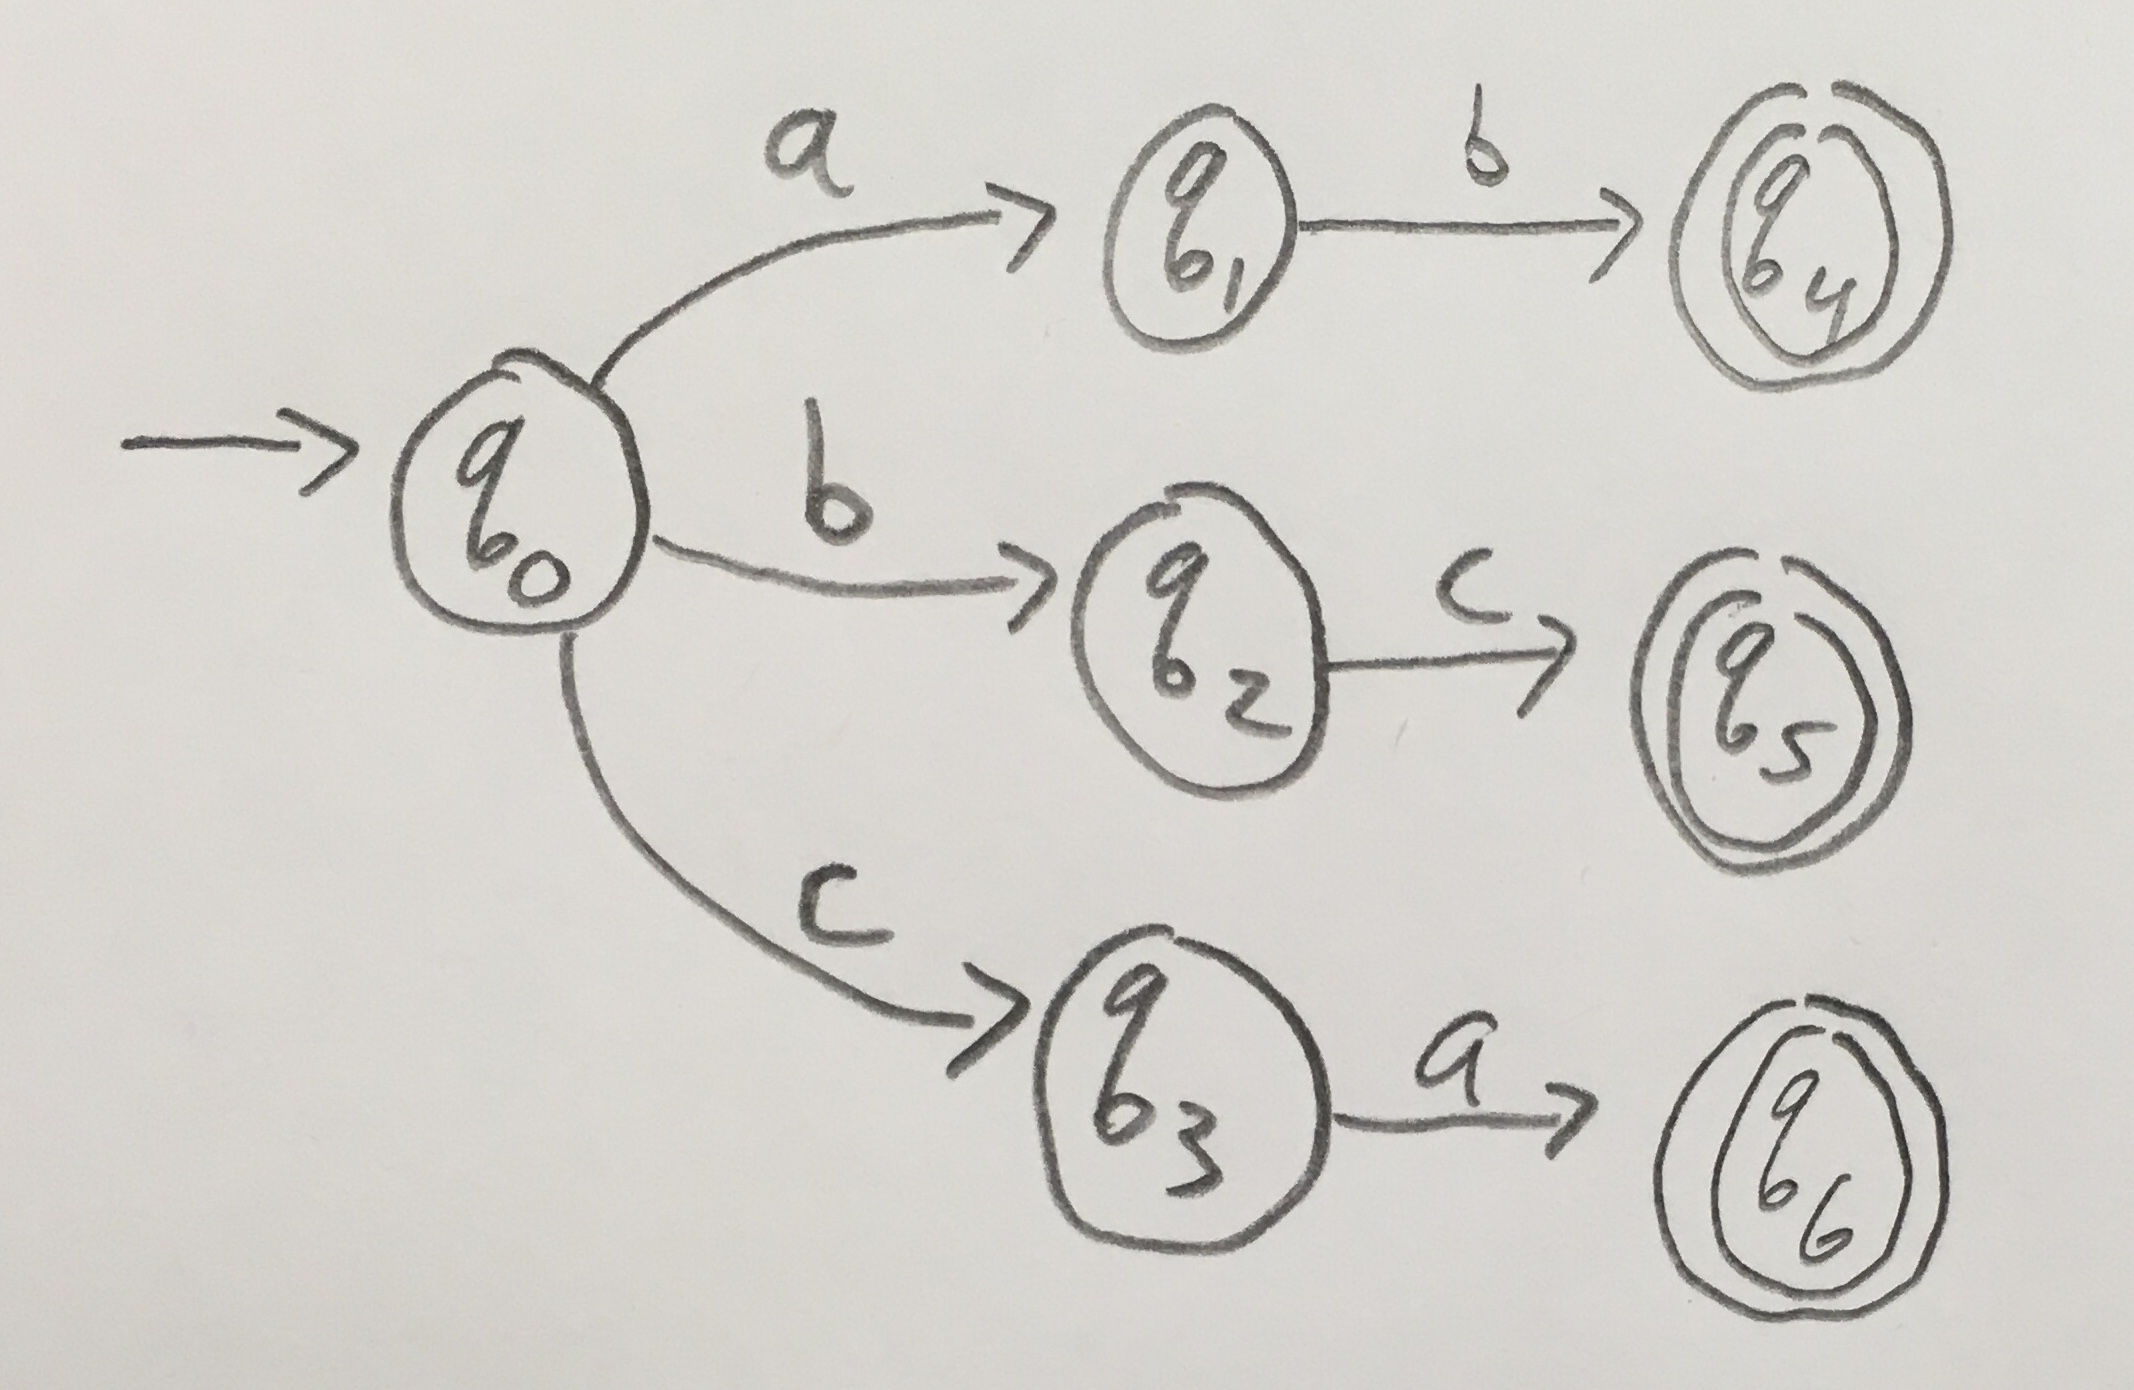 a
b
q1
q4
q0
b
q2
c
q5
c
q3
a
q6